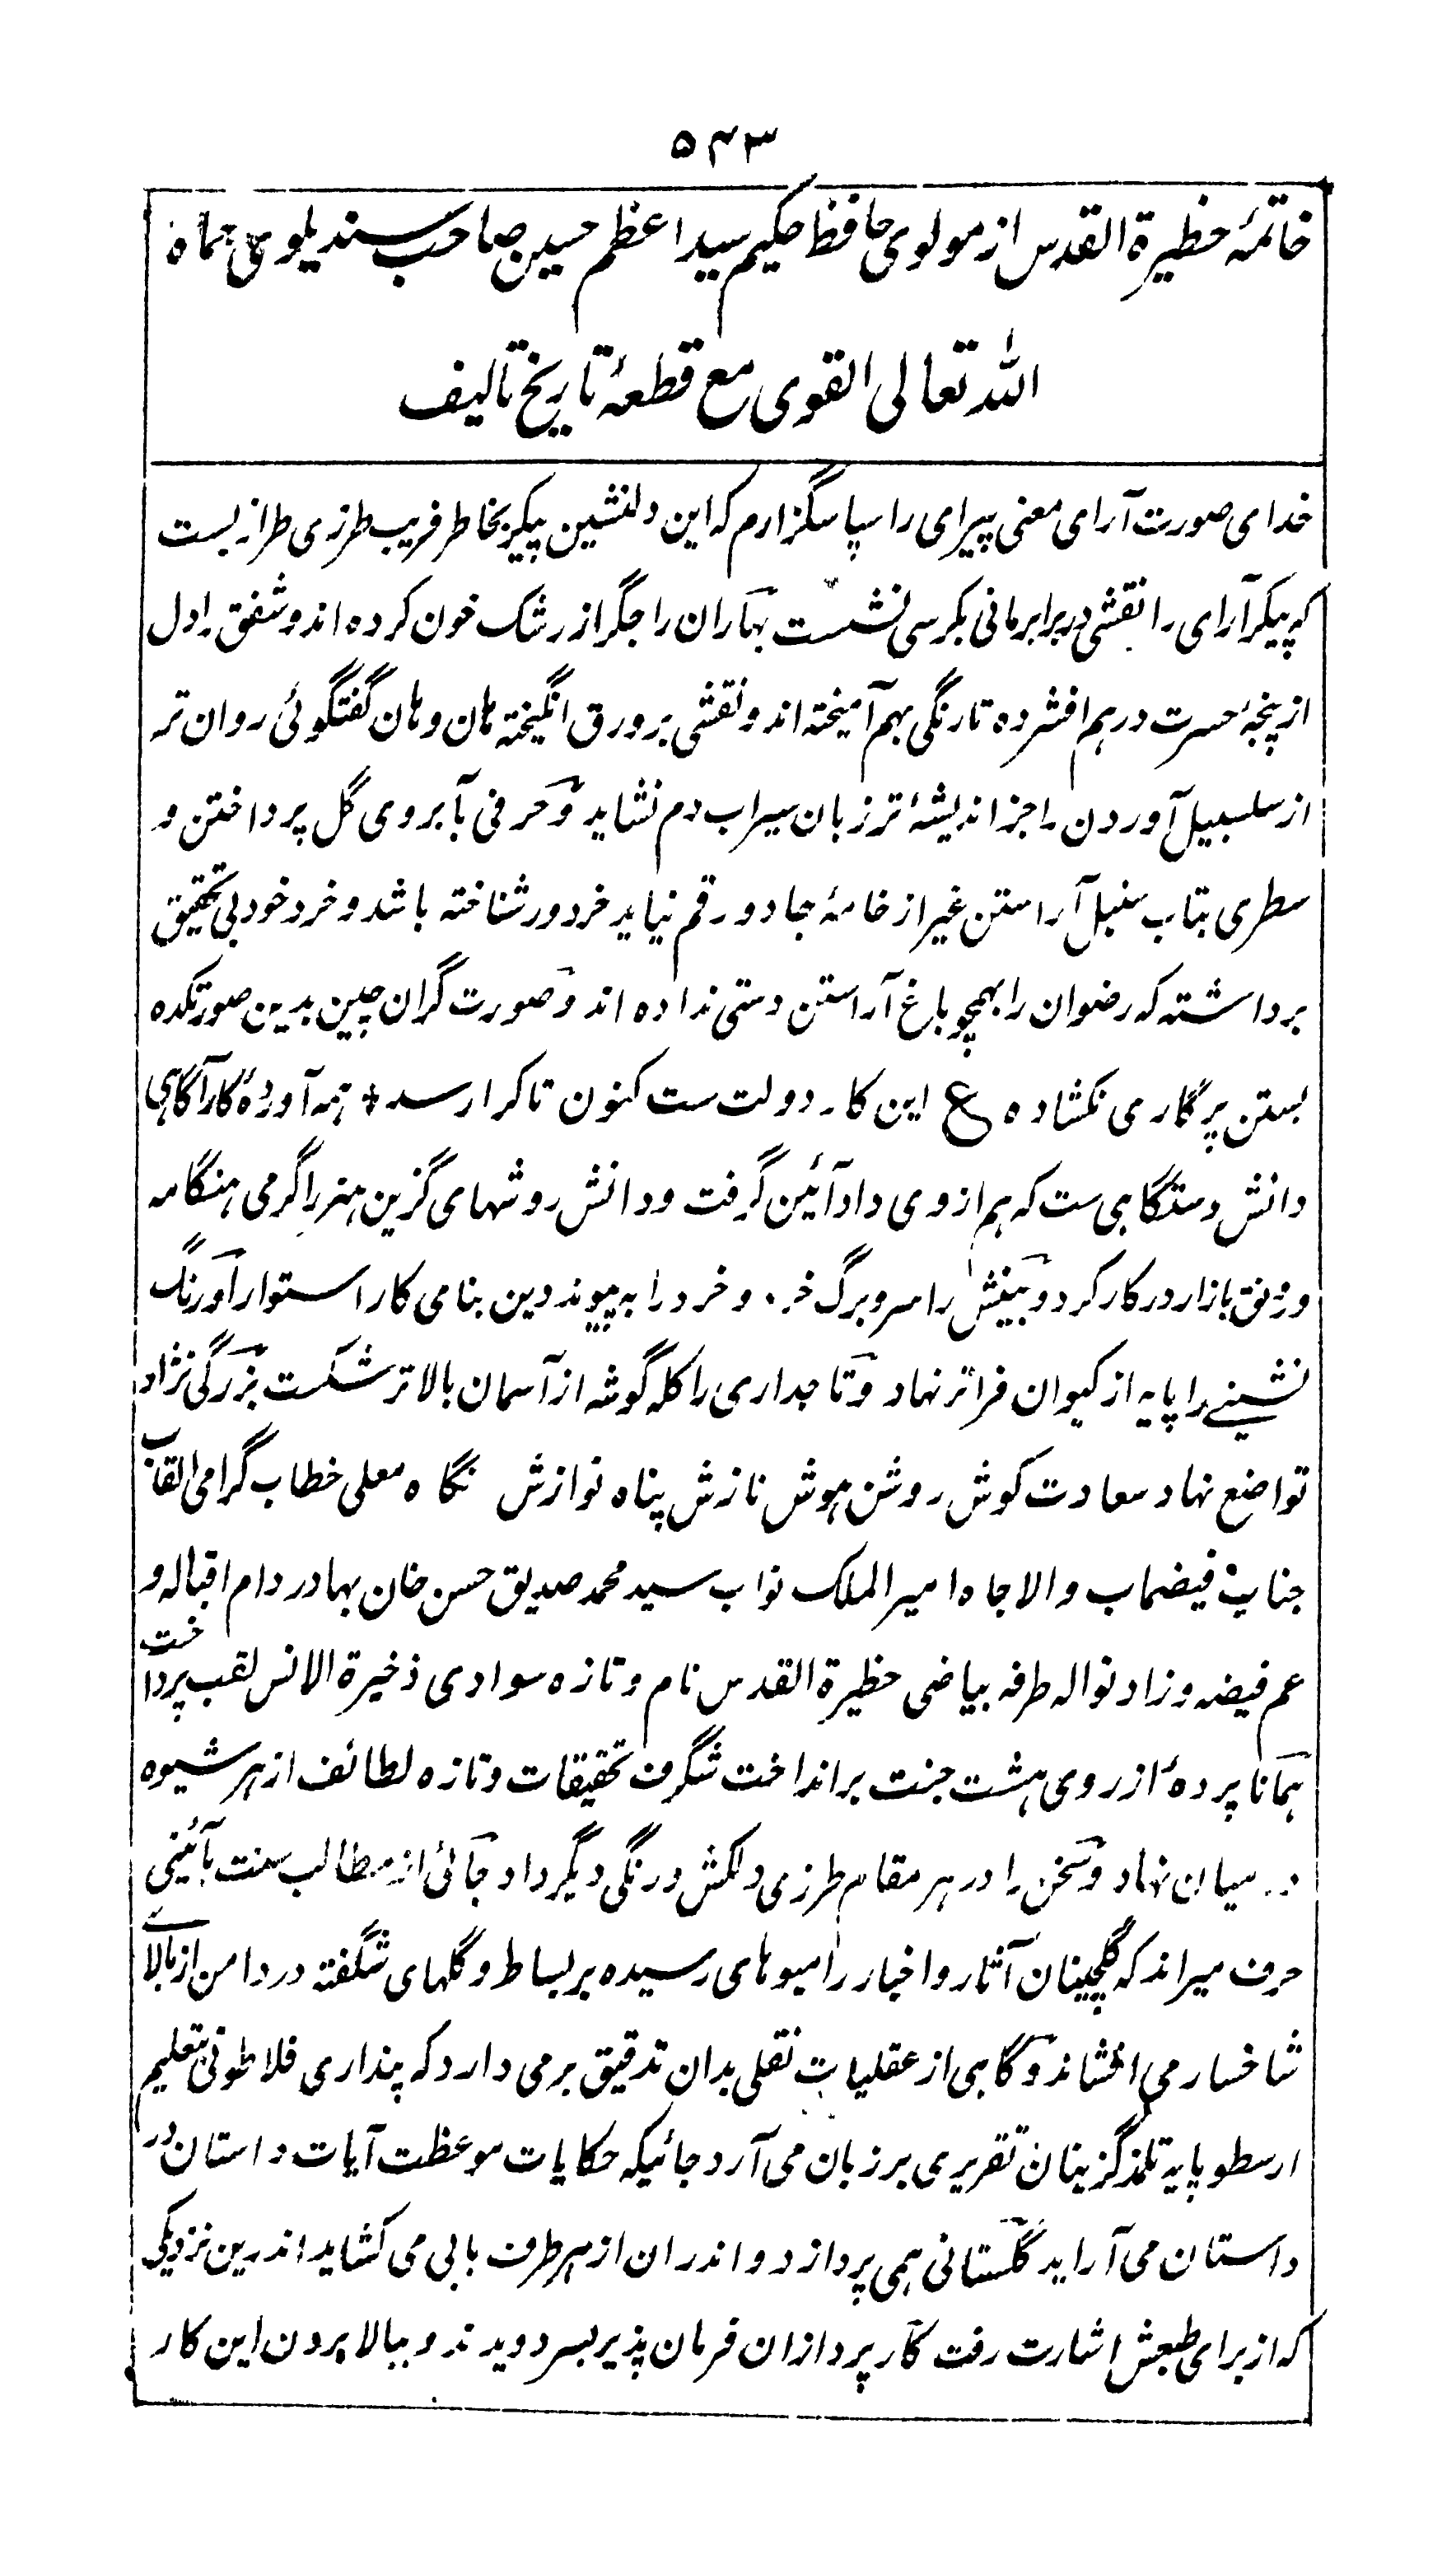 ۵۴۳
خاتمهٔ حظیرة القدس از مولوی حافظ حکیم سید اعظم حسین صاحب سندیلوی حماه
الله تعالی القوی مع قطعهٔ تاریخ تالیف
خدای صورت آرای معنی پیرای را سپاسگزارم که این دلنشین پیکر بخاطر فریب طرزی طراز بست
که پیکر آرای را نقشی در برابر مانی بکرسی نشست بهاران را جگر از رشک خون کرده اند و شفق را دل
از پنجهٔ حسرت درهم افشرده تا رنگی بهم آمیخته اند و نقشی بر ورق انگیخته هان و هان گفتگوئی روان تر
از سلسبیل آوردن را جز اندیشهٔ تر زبان سیراب دم نشاید و حرفی بآبروی گل پرداختن و
سطری بتاب سنبل آراستن غیر از خامهٔ جادو رقم نیاید خردور شناخته باشد و خرد خود پی تحقیق
برداشته که رضوان را بهمچو باغ آراستن دستی نداده اند و صورت گران چین بدین صورتکده
بستن پرگاری نکشاده ع این کار دولت ست کنون تا کرا رسد + همه آوردهٔ کار آگاهی
دانش دستگاهی ست که هم از وی داد آئین گرفت و دانش روشهای گزین هنر را گرمی هنگامه
و رونق بازار در کار کرد و بینش را سرو برگ خرد و خرد را به پیوند دین بنامی کار استوار اورنگ
نشینے را پایه از کیوان فراتر نهاد و تاجداری را کله گوشه از آسمان بالاتر شکست بزرگی نژاد
تواضع نهاد سعادت کوش روشن هوش نازش پناه نوازش نگاه معلی خطاب گرامی القاب
جناب فیضماب والا جاه امیر الملک نواب سید محمد صدیق حسن خان بهادر دام اقباله و
عم فیضه و زاد نواله طرفه بیاضی حظیرة القدس نام و تازه سوادی ذخیرة الانس لقب پرداخت
همانا پردهٔ از روی هشت جنت برانداخت شگرف تحقیقات و تازه لطائف از هر شیوه
در میان نهاد و سخن را در هر مقام طرزی دلکش و رنگی دیگر داد جائی از مطالب سنت بآئینی
حرف میراند که گلچینان آثار و اخبار را میوهای رسیده بر بساط و گلهای شگفته در دامن از بالاے
شاخسار می افشاند و گاهی از عقلیات نقلی بدان تدقیق برمی دارد که پنداری فلاطونی بتعلیم
ارسطو پایه تلمذ گزینان تقریری بر زبان می آرد جائیکه حکایات موعظت آیات داستان در
داستان می آراید گلستانی همی پردازد و اندران از هر طرف بابی می کشاید اندرین نزدیکی
که از برای طبعش اشارت رفت کار پردازان فرمان پذیر بسر دویدند و ببالا بردن این کار